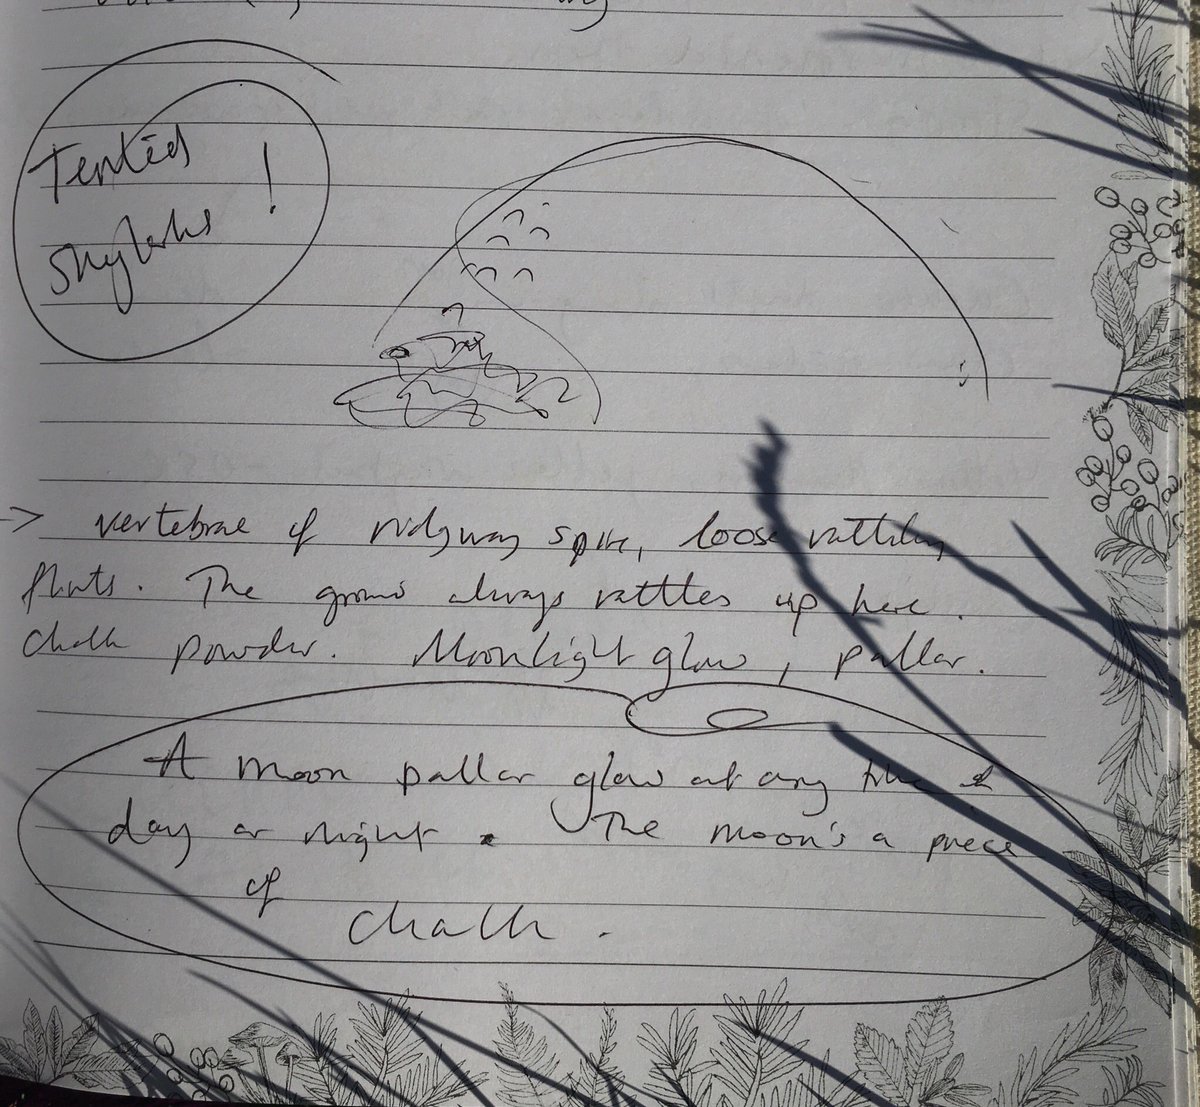 Tented
Skylarks !
→ vertebrae of ridgway spine, loose rattling
flints. The ground always rattles up here.
Chalk powder. Moonlight glow, pallor.
A moon pallor glow at any time of
day or night. The moon's a piece
of
Chalk.